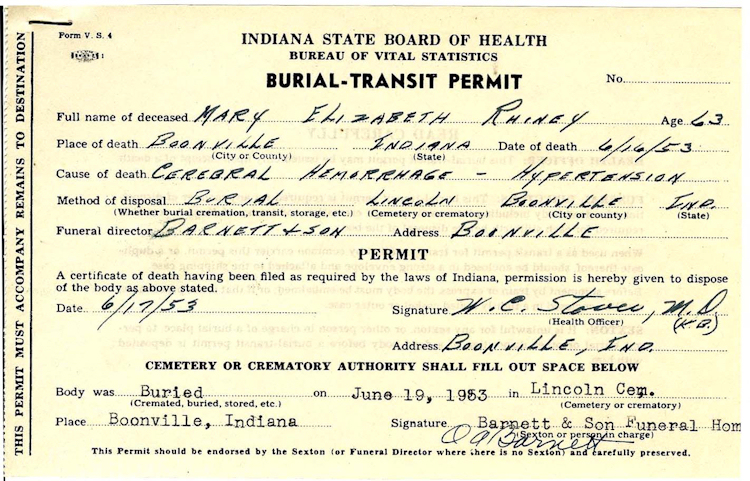 Form V. S. 4
INDIANA STATE BOARD OF HEALTH
BUREAU OF VITAL STATISTICS
BURIAL-TRANSIT PERMIT
No.
Full name of deceased MARY ELIZABETH RHINEY Age 63
Place of death BOONVILLE INDIANA Date of death 6/16/53
(City or County) (State)
Cause of death CEREBRAL HEMORRHAGE - HYPERTENSION
Method of disposal BURIAL LINCOLN BOONVILLE IND.
(Whether burial cremation, transit, storage, etc.) (Cemetery or crematory) (City or county) (State)
Funeral director BARNETT & SON Address BOONVILLE
PERMIT
A certificate of death having been filed as required by the laws of Indiana, permission is hereby given to dispose
of the body as above stated.
Date 6/17/53 Signature W. C. Stover, M.D.
(Health Officer)
Address BOONVILLE, IND.
CEMETERY OR CREMATORY AUTHORITY SHALL FILL OUT SPACE BELOW
Body was Buried on June 19, 1953 in Lincoln Cem.
(Cremated, buried, stored, etc.) (Cemetery or crematory)
Place Boonville, Indiana Signature Barnett & Son Funeral Hom
(Sexton or person in charge)
O A Barnett
This Permit should be endorsed by the Sexton (or Funeral Director where there is no Sexton) and carefully preserved.
THIS PERMIT MUST ACCOMPANY REMAINS TO DESTINATION